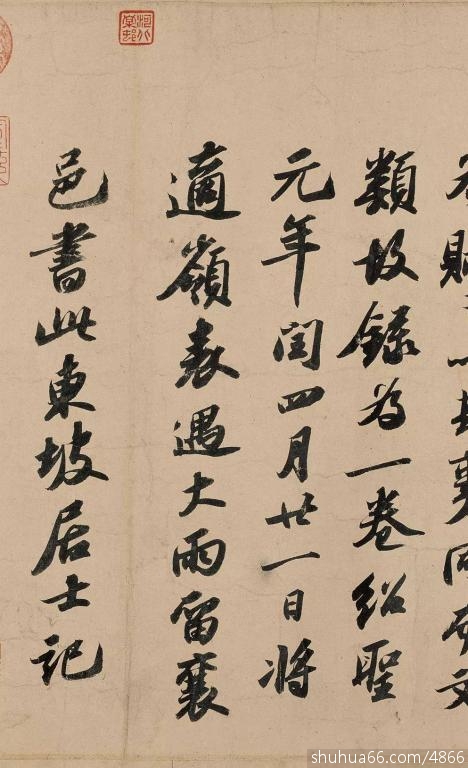 賦之以其事同而文
類故錄為一卷紹聖
元年閏四月廿一日將
適嶺表遇大雨留襄
邑書此東坡居士記
shuhua66.com/4866